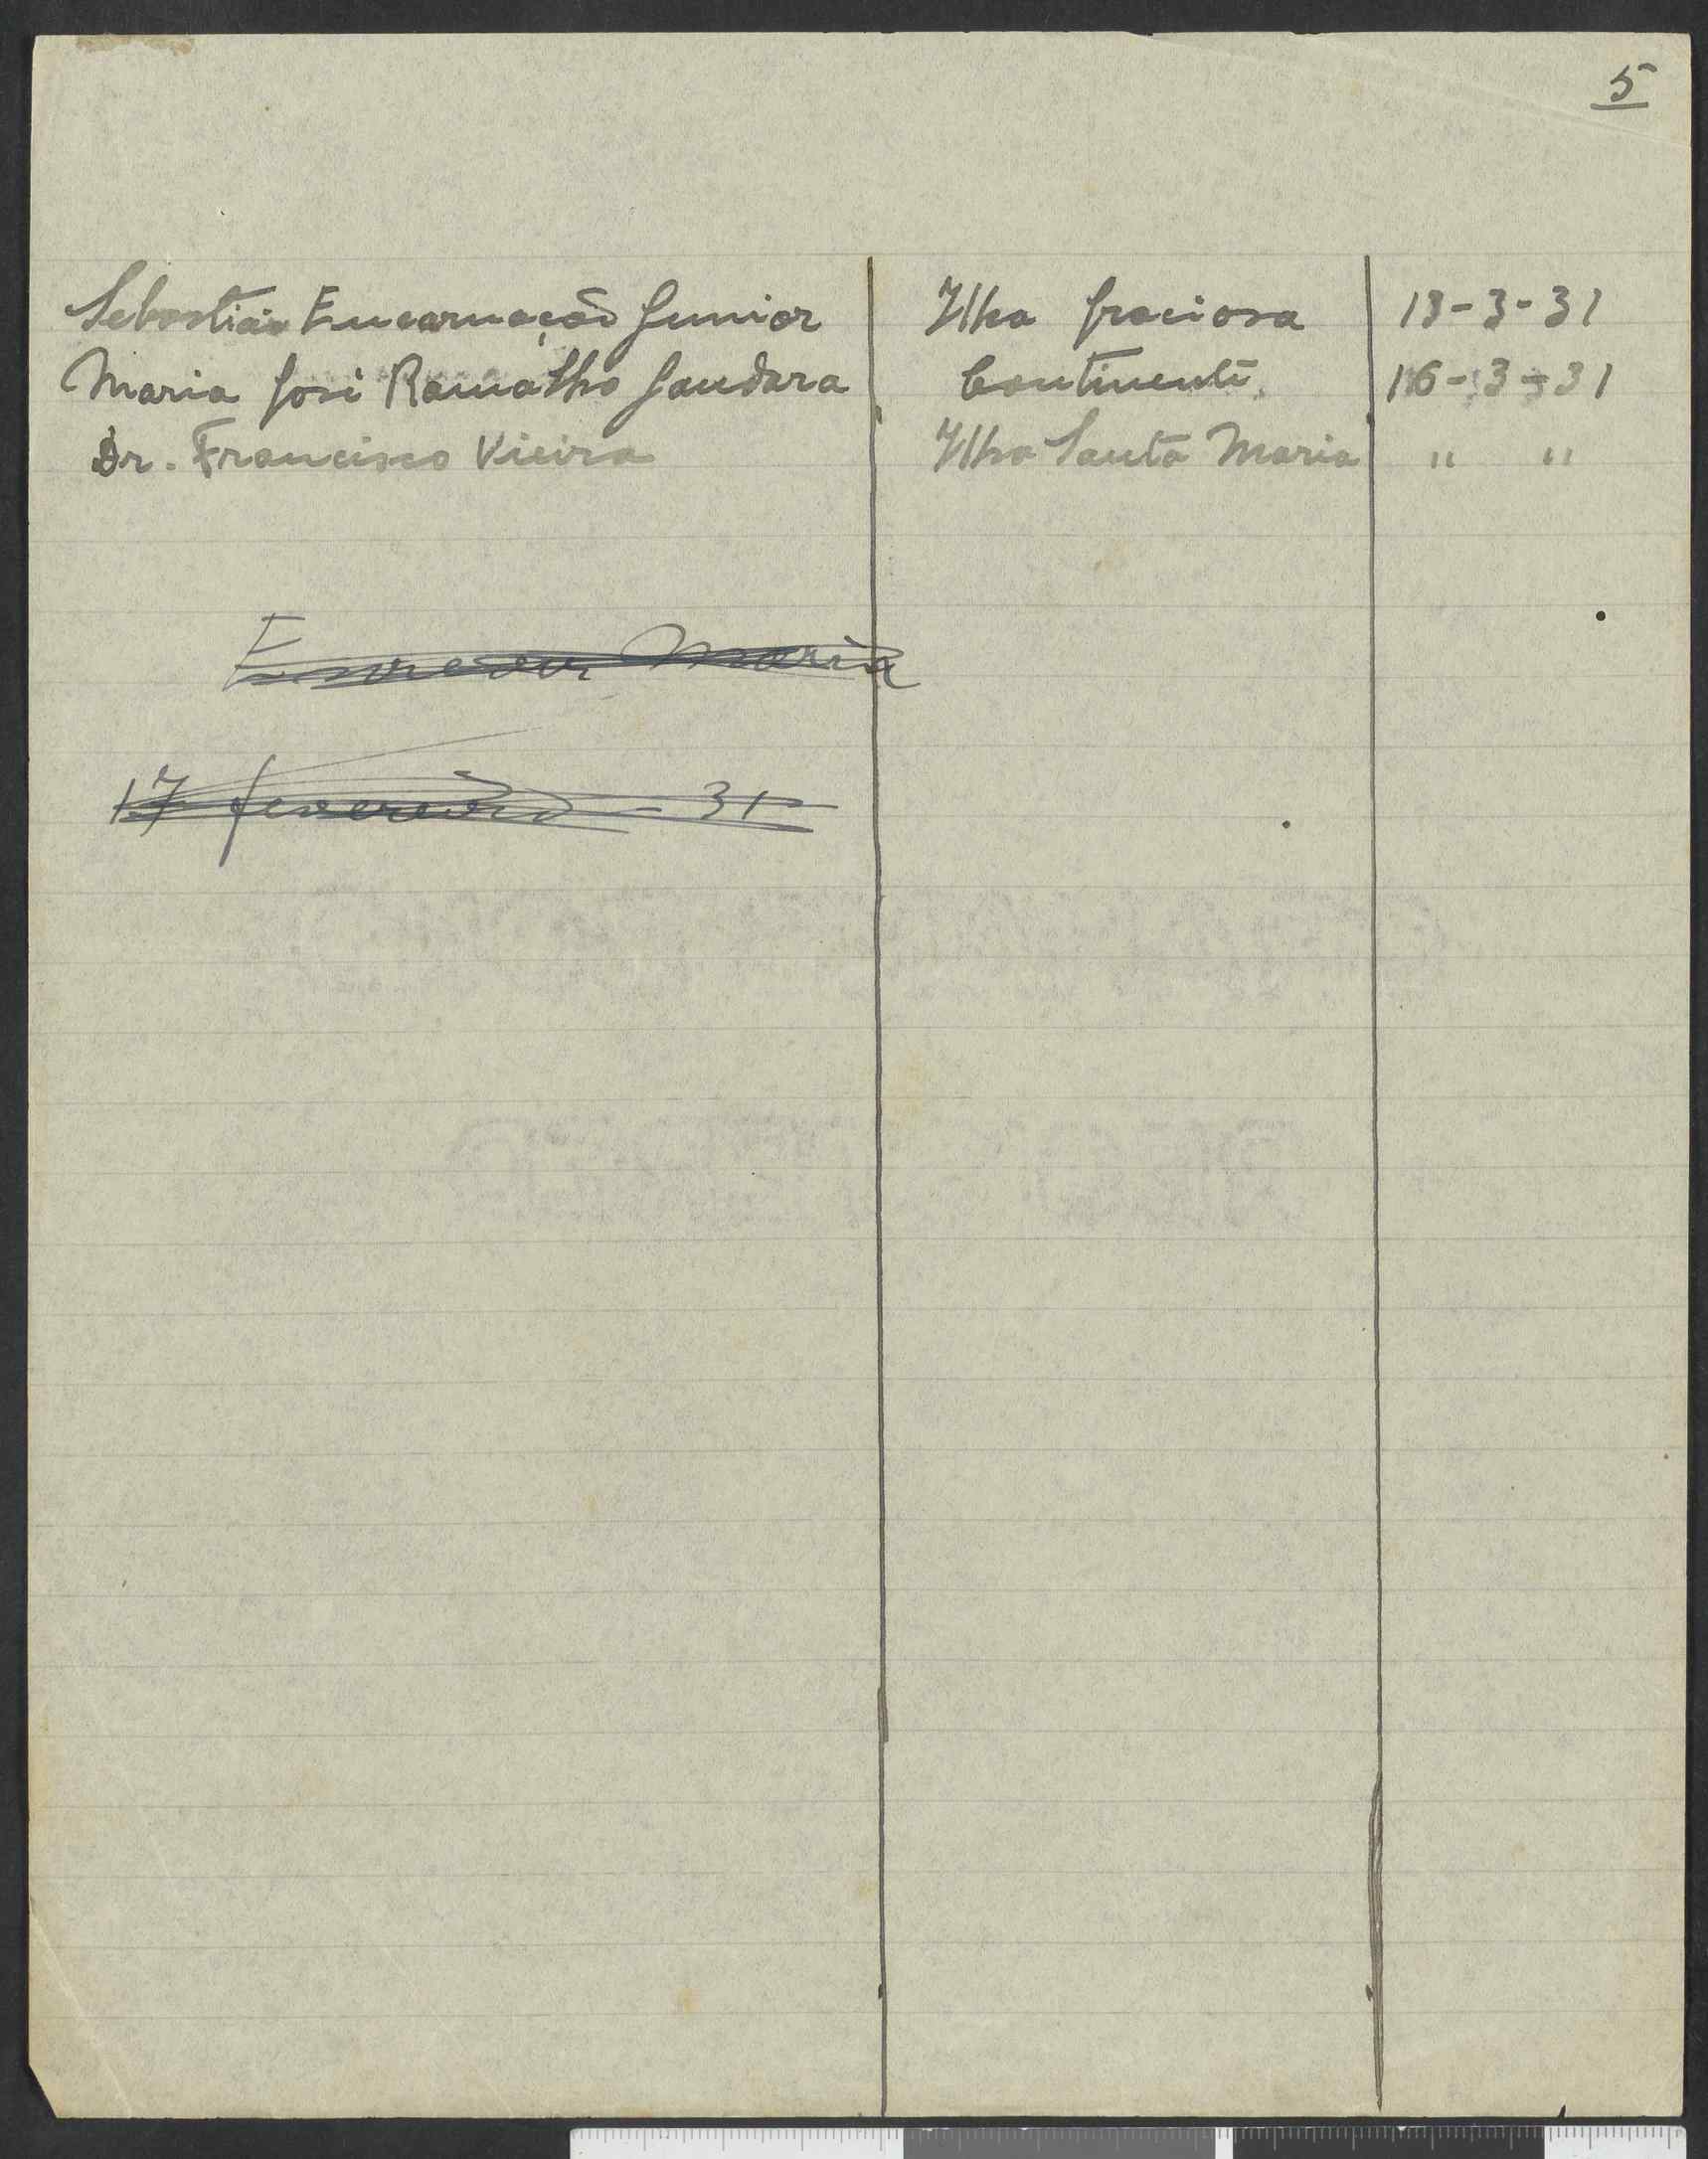 5
Sebastião Encarnação Junior Ilha Graciosa 13-3-31
Maria José Ramalho Gandara Continente 16-3-31
Dr. Francisco Vieira Ilha Santa Maria " "
Escrever Maria
17 fevereiro - 31